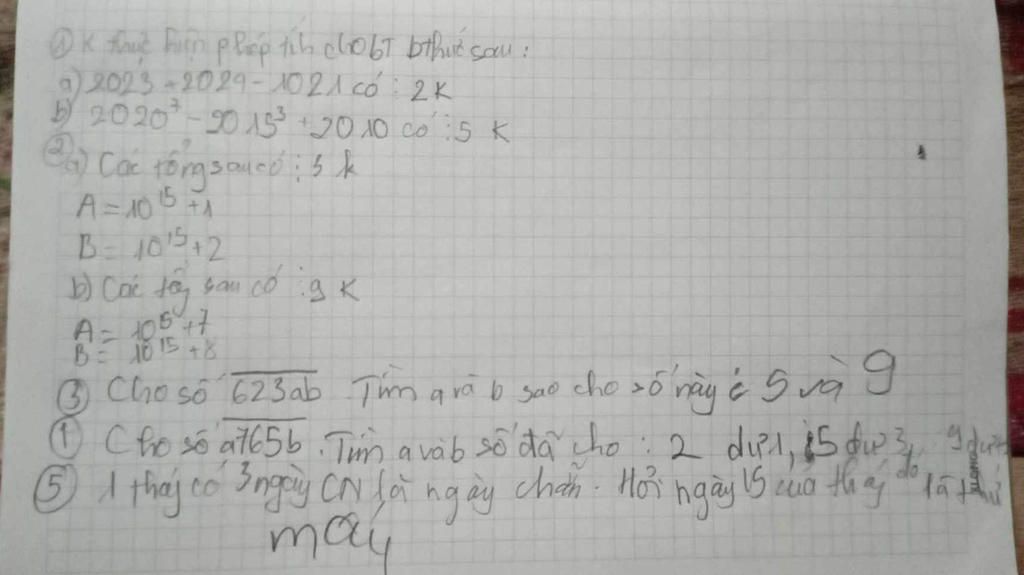 ① K thực hiện phép tính cho bt bthức sau:
a) 2023 + 2024 - 1021 có ⋮ 2 K
b) 2020⁷ - 2015³ + 2010 có ⋮ 5 K
② a) Các tổng sau có ⋮ 3 k
A = 10¹⁵ + 1
B = 10¹⁵ + 2
b) Các tổg sau có ⋮ 9 K
A = 10¹⁵ + 7
B = 10¹⁵ + 8
③ Cho số 623ab. Tìm a và b sao cho số này ⋮ 5 và 9
Cho số a765b. Tìm a và b số đã cho ⋮ 2 dư 1, ⋮ 5 dư 3, 9 dư
⑤ 1 tháj có 3 ngày CN là ngày chẵn. Hỏi ngày 15 của tháj đó là thứ
mấy